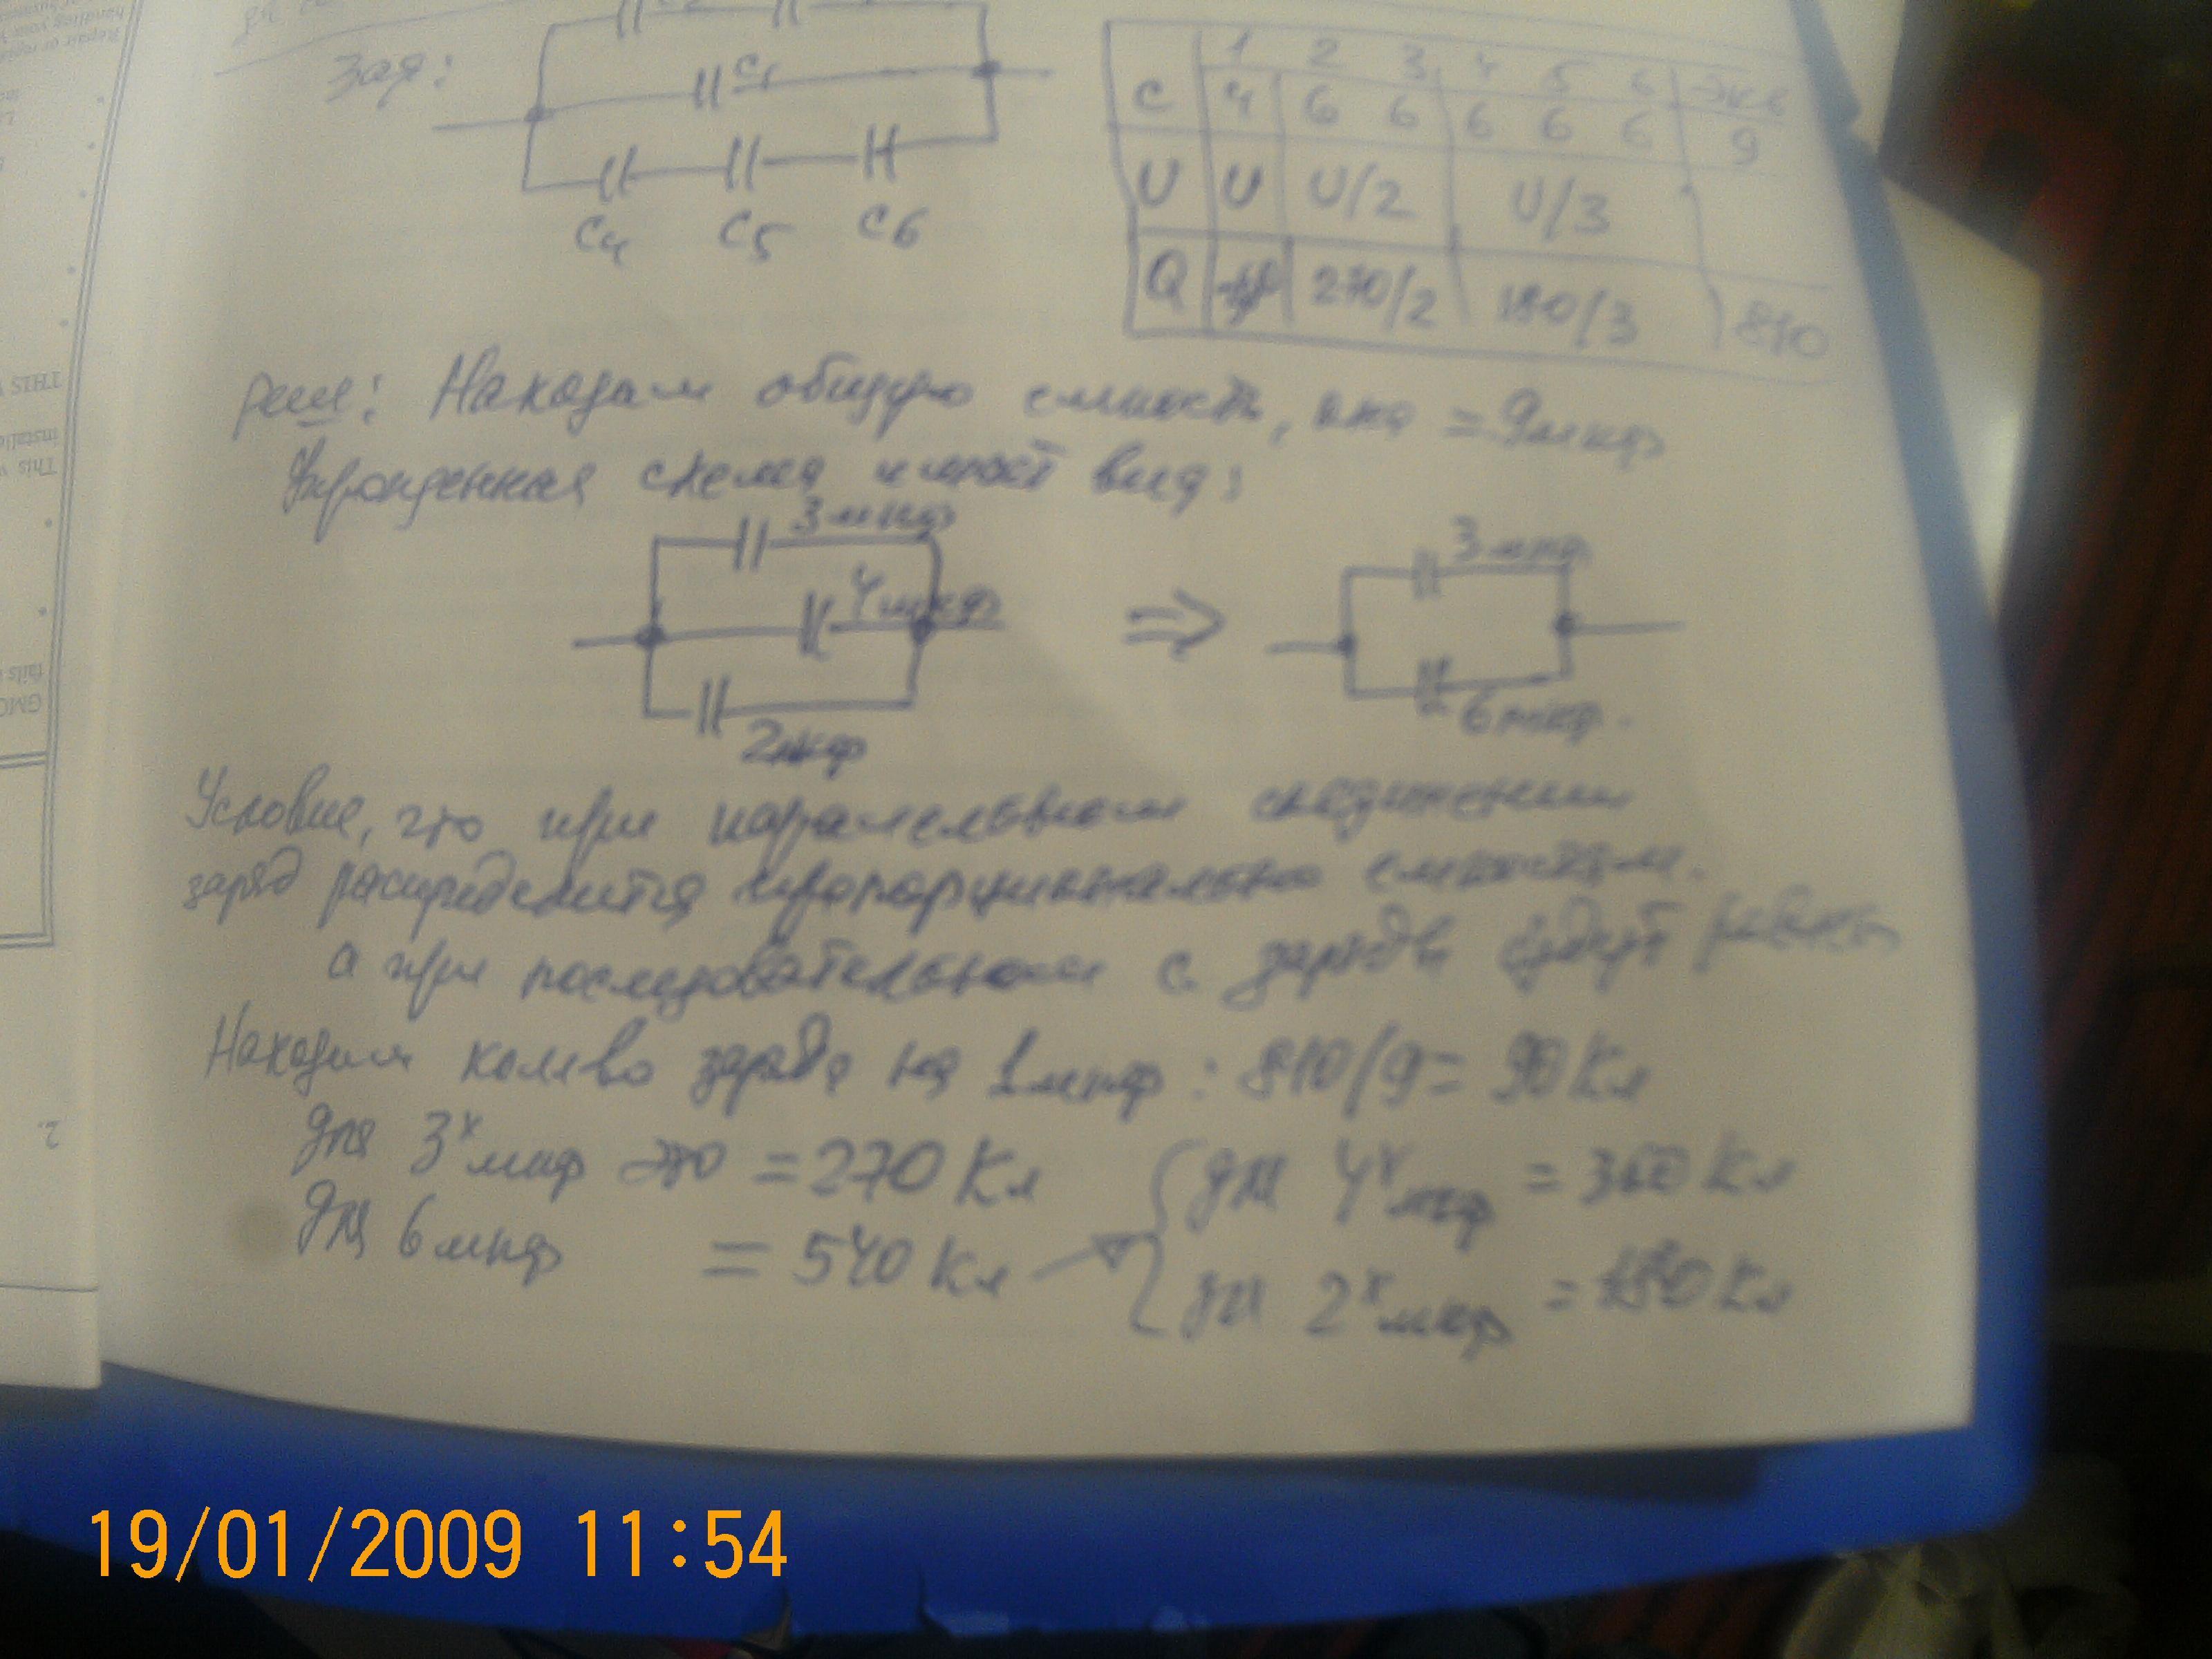 Зад:
C1
C4 C5 C6
1 2 3 4 5 6 экв
C 4 6 6 6 6 6 9
U U U/2 U/3
Q 270/2 180/3 810
реш: Находим общую емкость, она = 9мкф
Упрощенная схема имеет вид:
3мкф
4мкф
2мкф
⇒
3мкф
6мкф
Условие, что при паралельном соединении
заряд распределится пропорционально емкостям.
а при последовательном с. заряды будут равны
Находим кол-во заряда на 1мкф: 810/9= 90 Кл
для 3х мкф = 270 Кл
для 6 мкф = 540 Кл
для 4х мкф = 360 Кл
для 2х мкф = 180 Кл
THIS
This
fails
GMC
2.
19/01/2009 11:54